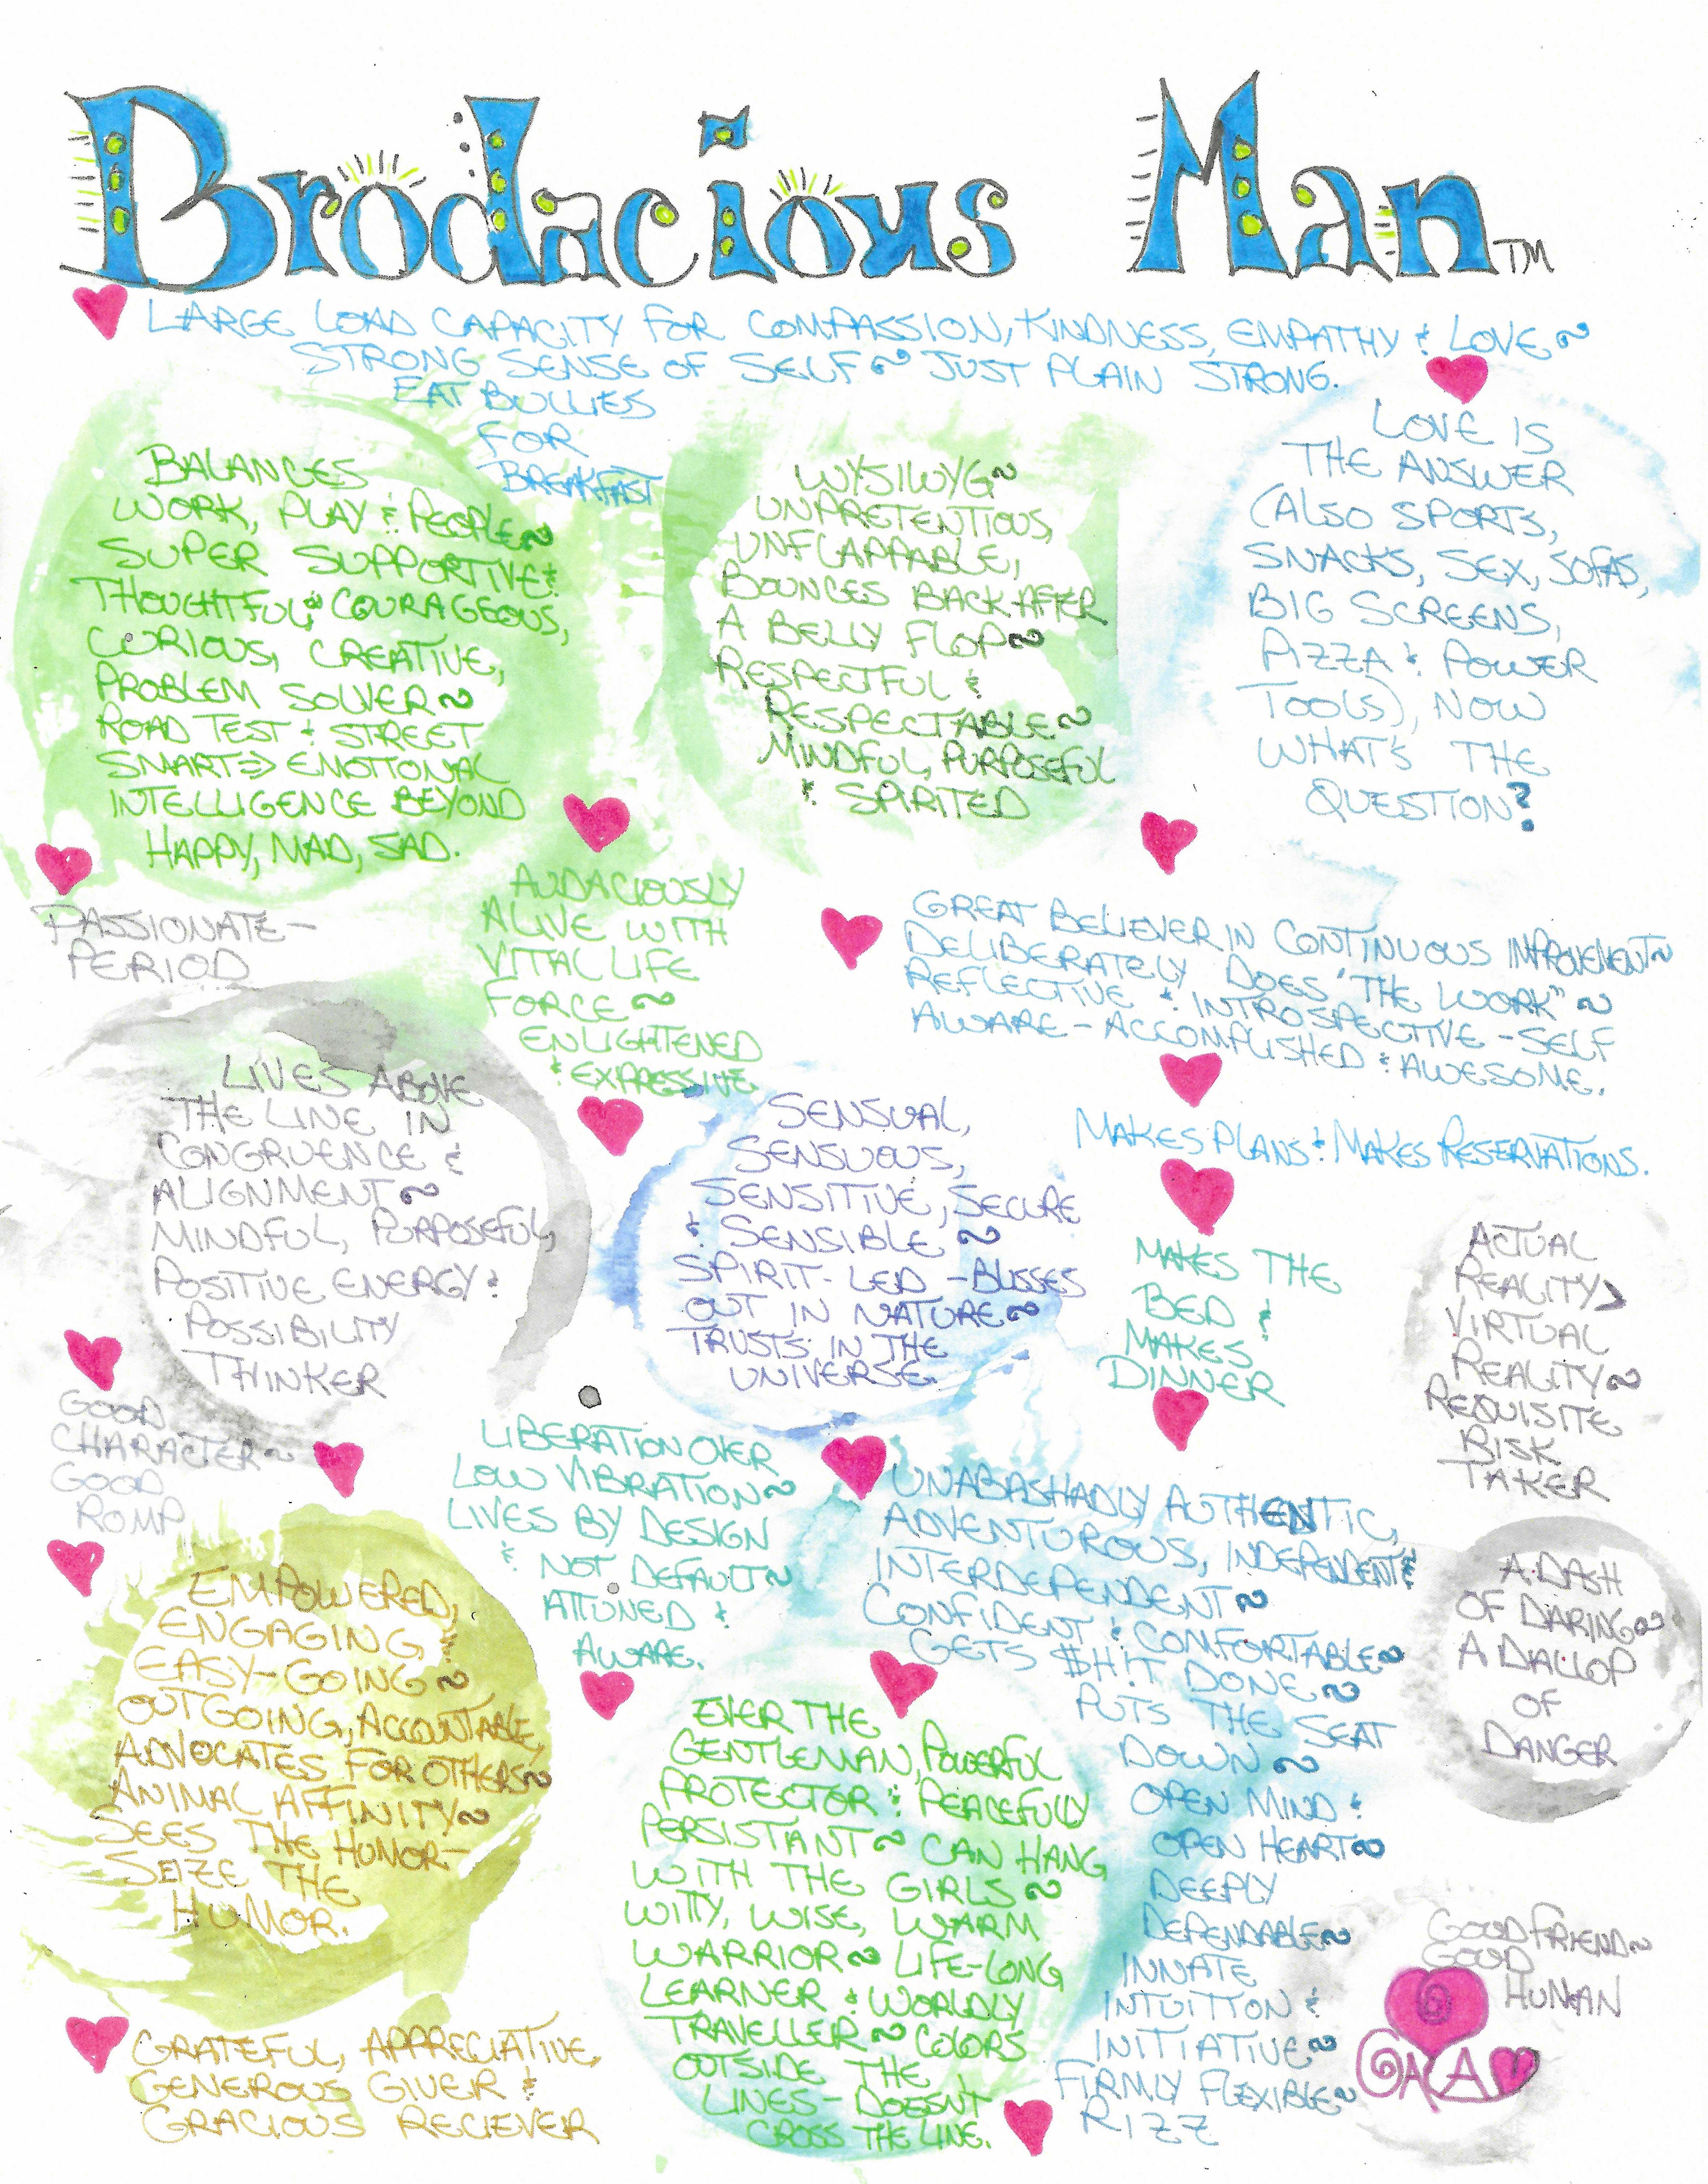 Brodacious Man TM
LARGE LOAD CAPACITY FOR COMPASSION, KINDNESS, EMPATHY & LOVE ~
STRONG SENSE OF SELF ~ JUST PLAIN STRONG.
EAT BULLIES
FOR
BREAKFAST
BALANCES
WORK, PLAY & PEOPLE ~
SUPER SUPPORTIVE &
THOUGHTFUL ~ COURAGEOUS,
CURIOUS, CREATIVE,
PROBLEM SOLVER ~
ROAD TEST & STREET
SMART => EMOTIONAL
INTELLIGENCE BEYOND
HAPPY, MAD, SAD.
WYSIWYG ~
UNPRETENTIOUS,
UNFLAPPABLE,
BOUNCES BACK AFTER
A BELLY FLOP ~
RESPECTFUL &
RESPECTABLE ~
MINDFUL, PURPOSEFUL
& SPIRITED
LOVE IS
THE ANSWER
(ALSO SPORTS,
SNACKS, SEX, SOFAS,
BIG SCREENS,
PIZZA & POWER
TOOLS), NOW
WHAT'S THE
QUESTION?
PASSIONATE -
PERIOD
AUDACIOUSLY
ALIVE WITH
VITAL LIFE
FORCE ~
ENLIGHTENED
& EXPRESSIVE.
GREAT BELIEVER IN CONTINUOUS IMPROVEMENT ~
DELIBERATELY DOES "THE WORK" ~
REFLECTIVE & INTROSPECTIVE - SELF
AWARE - ACCOMPLISHED & AWESOME.
LIVES ABOVE
THE LINE IN
CONGRUENCE &
ALIGNMENT ~
MINDFUL, PURPOSEFUL,
POSITIVE ENERGY &
POSSIBILITY
THINKER
SENSUAL,
SENSUOUS,
SENSITIVE, SECURE
& SENSIBLE ~
SPIRIT-LED - BLISSES
OUT IN NATURE ~
TRUSTS IN THE
UNIVERSE.
MAKES PLANS & MAKES RESERVATIONS.
MAKES THE
BED &
MAKES
DINNER
ACTUAL
REALITY >
VIRTUAL
REALITY ~
REQUISITE
RISK
TAKER
GOOD
CHARACTER ~
GOOD
ROMP
LIBERATION OVER
LOW VIBRATION ~
LIVES BY DESIGN
& NOT DEFAULT ~
ATTUNED &
AWARE.
UNABASHADLY AUTHENTIC,
ADVENTUROUS, INDEPENDENT &
INTERDEPENDENT ~
CONFIDENT & COMFORTABLE ~
GETS $H!T DONE ~
PUTS THE SEAT
DOWN ~
OPEN MIND &
OPEN HEART ~
DEEPLY
DEPENDABLE ~
INNATE
INTUITION &
INITIATIVE ~
FIRMLY FLEXIBLE ~
RIZZ
A DASH
OF DARING ~
A DALLOP
OF
DANGER
EMPOWERED,
ENGAGING,
EASY-GOING ~
OUTGOING, ACCOUNTABLE,
ADVOCATES FOR OTHERS ~
ANIMAL AFFINITY ~
SEES THE HUMOR -
SEIZE THE
HUMOR.
EVER THE
GENTLEMAN, POWERFUL
PROTECTOR & PEACEFULLY
PERSISTANT ~ CAN HANG
WITH THE GIRLS ~
WITTY, WISE, WARM
WARRIOR ~ LIFE-LONG
LEARNER & WORLDLY
TRAVELLER ~ COLORS
OUTSIDE THE
LINES - DOESN'T
CROSS THE LINE.
GOOD FRIEND ~
GOOD
HUMAN
GRATEFUL, APPRECIATIVE,
GENEROUS GIVER &
GRACIOUS RECIEVER